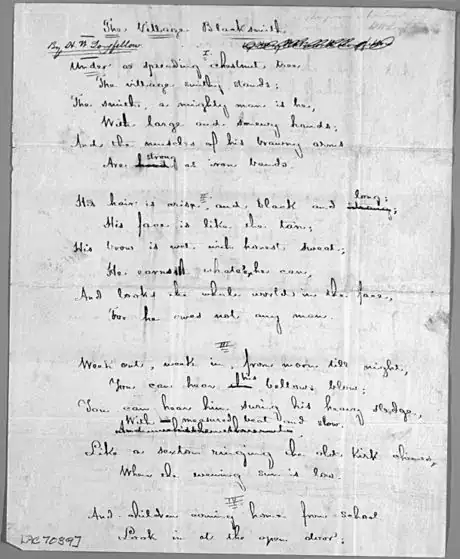 The Village Blacksmith
By H W Longfellow
I
Under a spreading chestnut tree
The village smithy stands;
The smith, a mighty man is he,
With large and sinewy hands;
And the muscles of his brawny arms
Are strong as iron bands.
II
His hair is crisp, and black and long;
His face is like the tan;
His brow is wet with honest sweat;
He earns whate'er he can,
And looks the whole world in the face,
For he owes not any man.
III
Week out, week in, from morn till night,
You can hear his bellows blow;
You can hear him, swing his heavy sledge,
With measured beat and slow.
Like a sexton ringing the old kirk chimes,
When the evening sun is low.
IV
And children coming home from school
Look in at the open door;